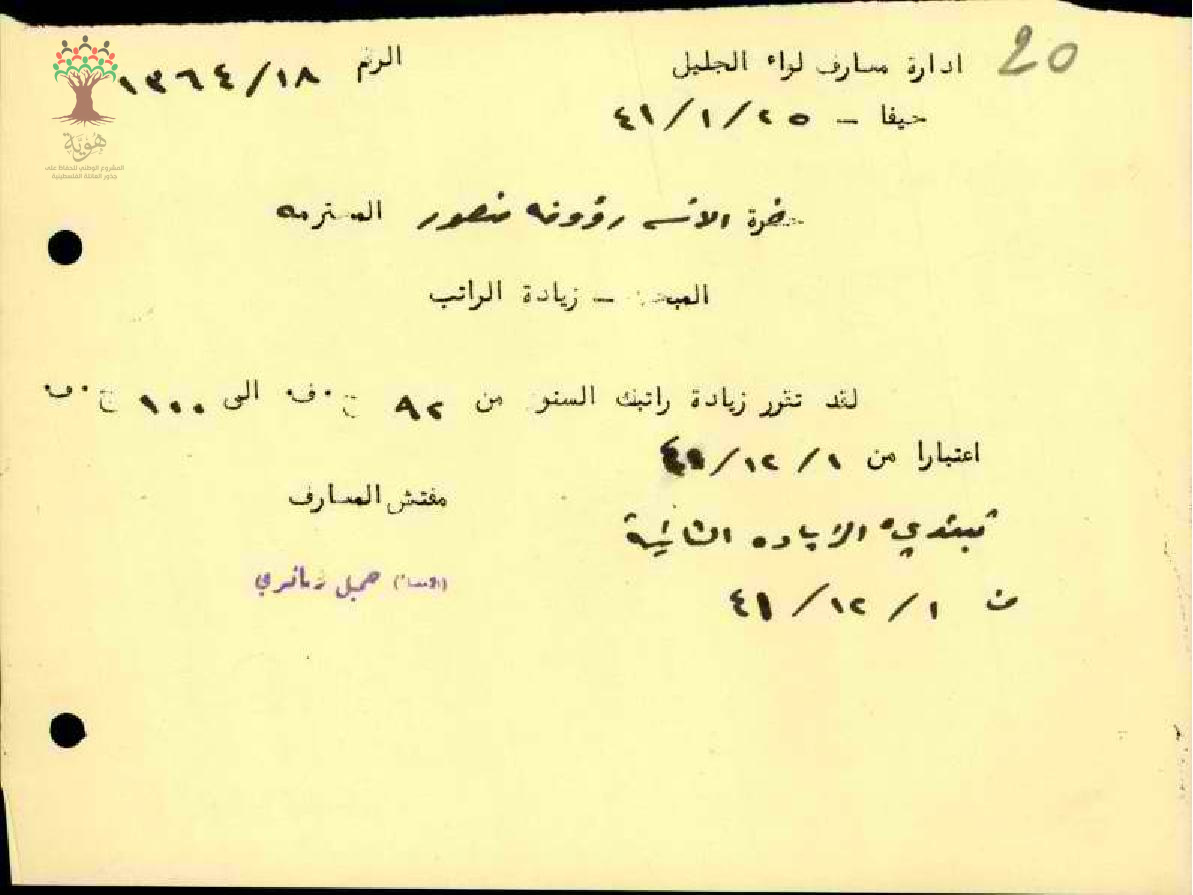 20
ادارة معارف لواء الجليل
الرقم ١٣٦٤/١٨
حيفا - ٤١/١/٢٥
هُويَّة
المشروع الوطني للحفاظ على
جذور العائلة الفلسطينية
حضرة الانسه رؤوفه منصور المحترمه
المبحث - زيادة الراتب
لقد تقرر زيادة راتبك السنوي من ٩٢ ج.ف. الى ١٠٠ ج.ف
اعتبارا من ١/١٢/٤١
مفتش المعارف
تبتدئ الزياده التالية
(امضاء) جميل
١/١٢/٤١